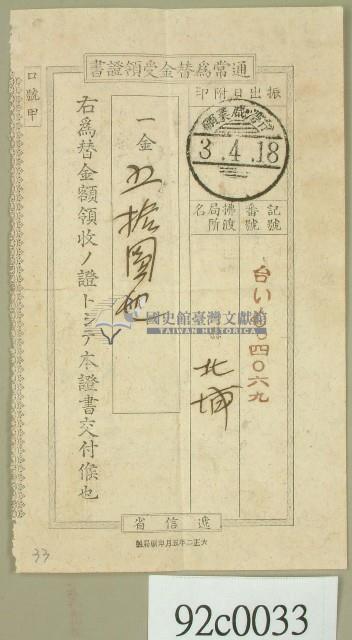 通常為替金受領證書
口號甲
振出日附印
3.4.18
記號番號
拂渡局所名
台い
四〇六九
北埔
一金
五拾圓也
右爲替金額領收ノ證トシテ本證書交付候也
遞信省
國史館臺灣文獻館
TAIWAN HISTORICA
33
92c0033